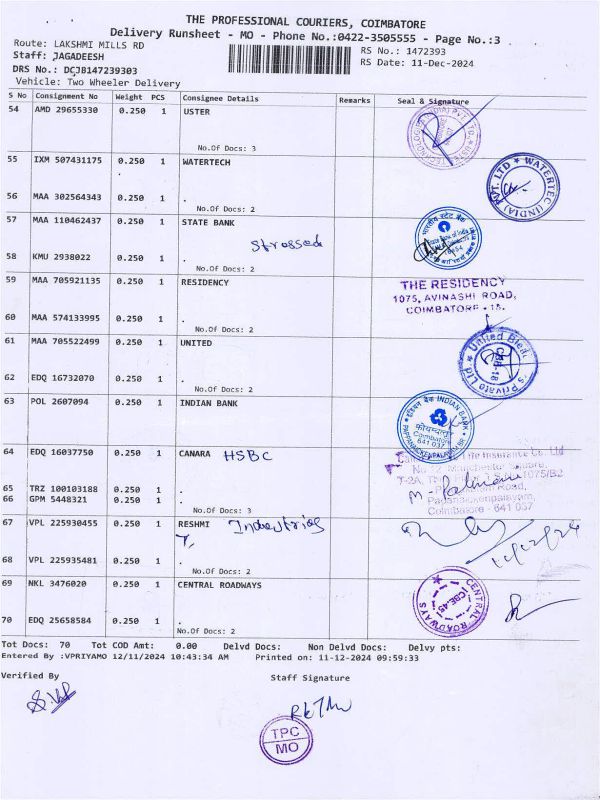 THE PROFESSIONAL COURIERS, COIMBATORE
Delivery Runsheet - MO - Phone No.:0422-3505555 - Page No.:3
Route: LAKSHMI MILLS RD
RS No.: 1472393
Staff: JAGADEESH
RS Date: 11-Dec-2024
DRS No.: DCJB147239303
Vehicle: Two Wheeler Delivery
S No Consignment No Weight PCS Consignee Details Remarks Seal & Signature
54 AMD 29655330 0.250 1 USTER
No.Of Docs: 3
55 IXM 507431175 0.250 1 WATERTECH
WATERTEC (INDIA) PVT. LTD
56 MAA 302564343 0.250 1 .
No.Of Docs: 2
57 MAA 110462437 0.250 1 STATE BANK
भारतीय स्टेट बैंक
State Bank of India
58 KMU 2938022 0.250 1 .
No.Of Docs: 2
59 MAA 705921135 0.250 1 RESIDENCY
THE RESIDENCY
1075, AVINASHI ROAD,
COIMBATORE - 18.
60 MAA 574133995 0.250 1 .
No.Of Docs: 2
61 MAA 705522499 0.250 1 UNITED
United
62 EDQ 16732070 0.250 1 .
No.Of Docs: 2
63 POL 2607094 0.250 1 INDIAN BANK
इंडियन बैंक INDIAN BANK
कोयम्बत्तूर
Coimbatore
641 037
PAPPANAICKENPALAYAM
64 EDQ 16037750 0.250 1 CANARA HSBC
Life Insurance Co. Ltd
65 TRZ 100103188 0.250 1 .
66 GPM 5448321 0.250 1 .
Road,
Papanaickenpalayam,
Coimbatore - 641 037
No.Of Docs: 3
67 VPL 225930455 0.250 1 RESHMI Industries
68 VPL 225935481 0.250 1 .
No.Of Docs: 2
69 NKL 3476020 0.250 1 CENTRAL ROADWAYS
CENTRAL ROADWAYS
CBE-45
70 EDQ 25658584 0.250 1 .
No.Of Docs: 2
Tot Docs: 70 Tot COD Amt: 0.00 Delvd Docs: Non Delvd Docs: Delvy pts:
Entered By :VPRIYAMO 12/11/2024 10:43:34 AM Printed on: 11-12-2024 09:59:33
Verified By
Staff Signature
TPC
MO